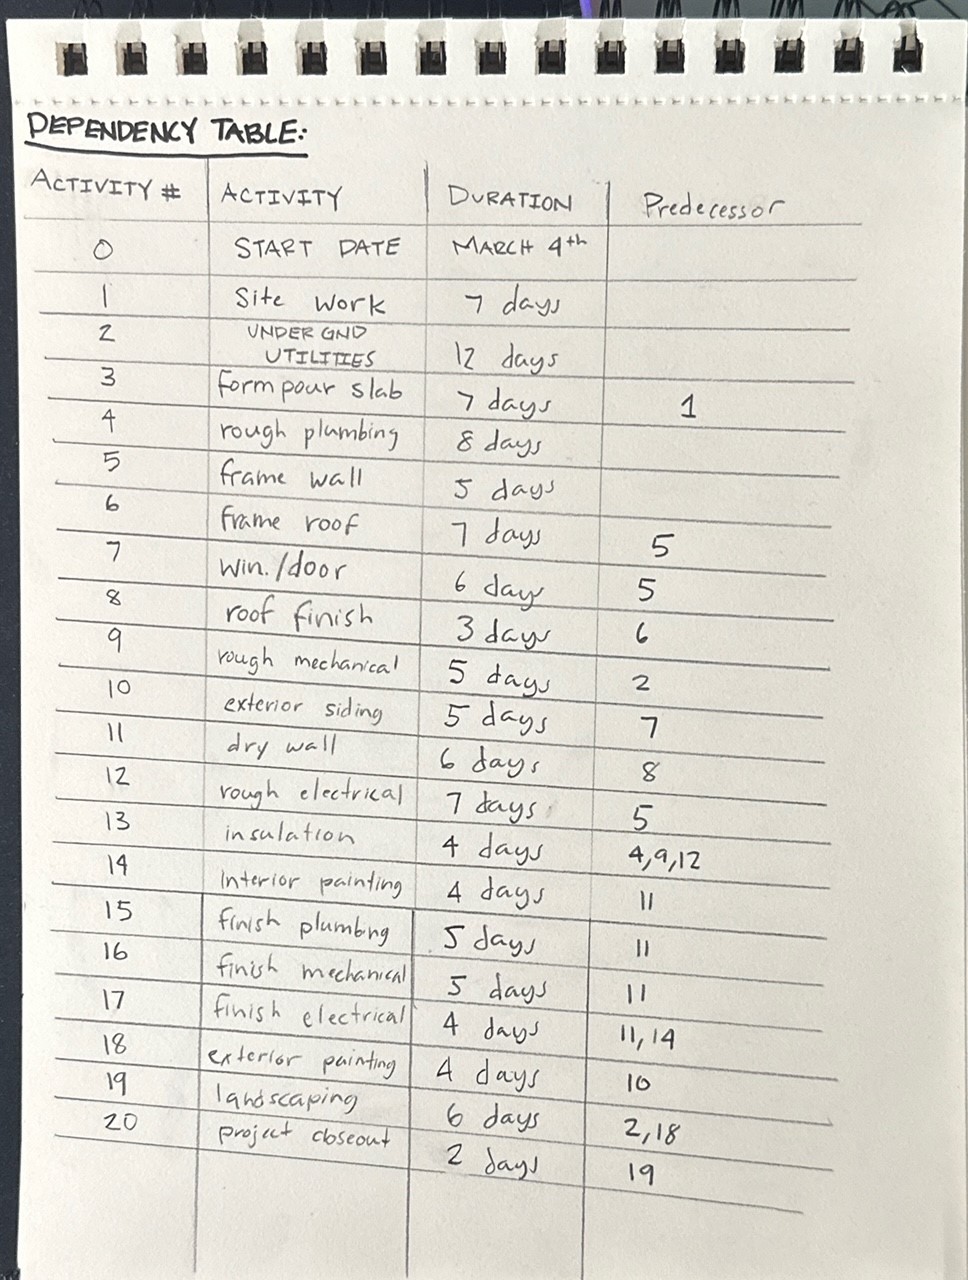 DEPENDENCY TABLE:
ACTIVITY # ACTIVITY DURATION Predecessor
0 START DATE MARCH 4th
1 Site work 7 days
2 UNDER GND UTILITIES 12 days
3 form pour slab 7 days 1
4 rough plumbing 8 days
5 frame wall 5 days
6 frame roof 7 days 5
7 win./door 6 days 5
8 roof finish 3 days 6
9 rough mechanical 5 days 2
10 exterior siding 5 days 7
11 dry wall 6 days 8
12 rough electrical 7 days 5
13 insulation 4 days 4,9,12
14 Interior painting 4 days 11
15 finish plumbng 5 days 11
16 finish mechanical 5 days 11
17 finish electrical 4 days 11,14
18 exterior painting 4 days 10
19 landscaping 6 days 2,18
20 project closeout 2 days 19